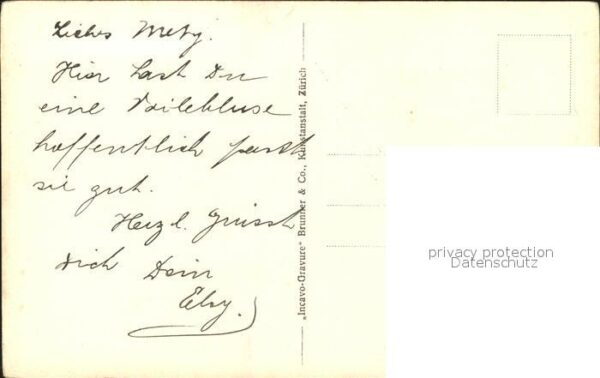 Liebes Mety.
Hier hast Du
eine Voilebluse
hoffentlich passt
sie gut.
Herzl. grüsst
Dich Dein
Elsy.
„Incavo-Gravure" Brunner & Co., Kunstanstalt, Zürich
privacy protection
Datenschutz